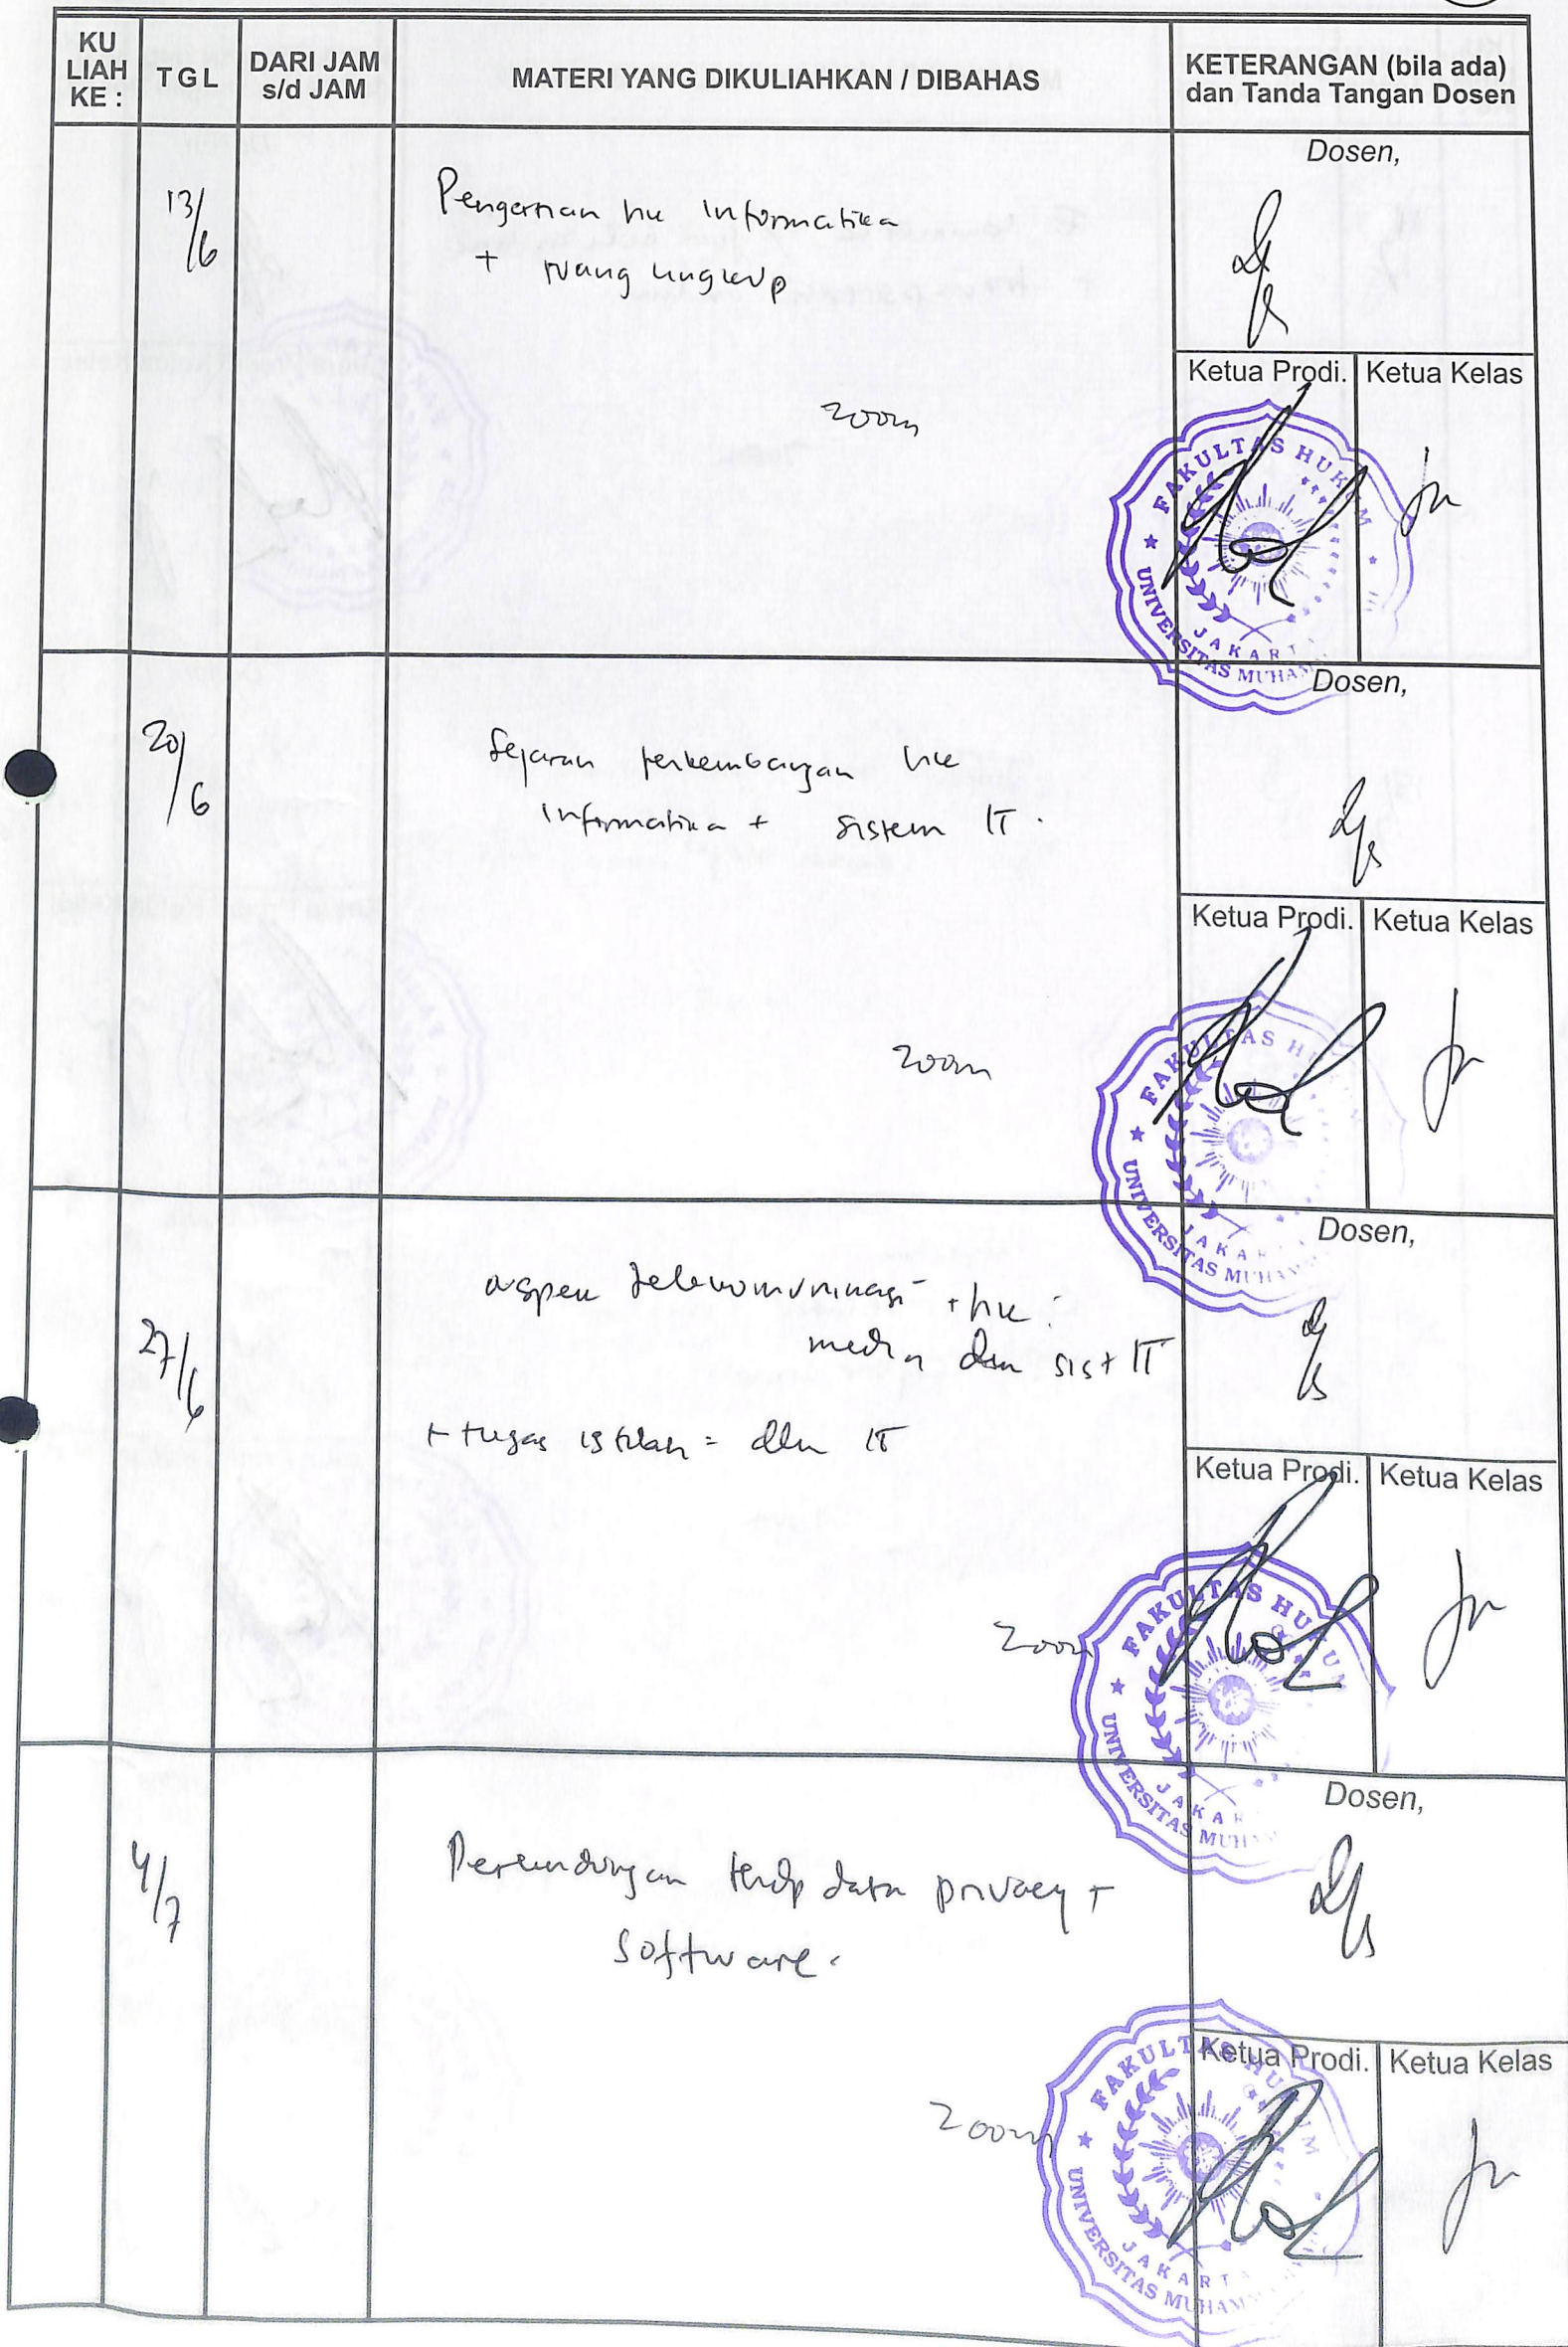 KU LIAH KE :
TGL
DARI JAM s/d JAM
MATERI YANG DIKULIAHKAN / DIBAHAS
KETERANGAN (bila ada) dan Tanda Tangan Dosen
13/6
Pengertian hk Informatika
+ ruang lingkup
zoom
Dosen,
Ketua Prodi.
Ketua Kelas
FAKULTAS HUKUM
UNIVERSITAS MUHAM
JAKART
20/6
Sejarah perkembangan hk
informatika + sistem IT.
zoom
Dosen,
Ketua Prodi.
Ketua Kelas
FAKULTAS HU
UNIVERSITAS MUHAM
JAKAR
27/6
aspek telekomunikasi + hk
media dan sist IT
+ tugas istilah = dlm IT
zoom
Dosen,
Ketua Prodi.
Ketua Kelas
FAKULTAS HUKUM
UNIVERSITAS MUH
JAKAR
4/7
Perlindungan thdp data privacy +
software.
zoom
Dosen,
Ketua Prodi.
Ketua Kelas
FAKULTAS HUKUM
UNIVERSITAS MUHAMM
JAKARTA